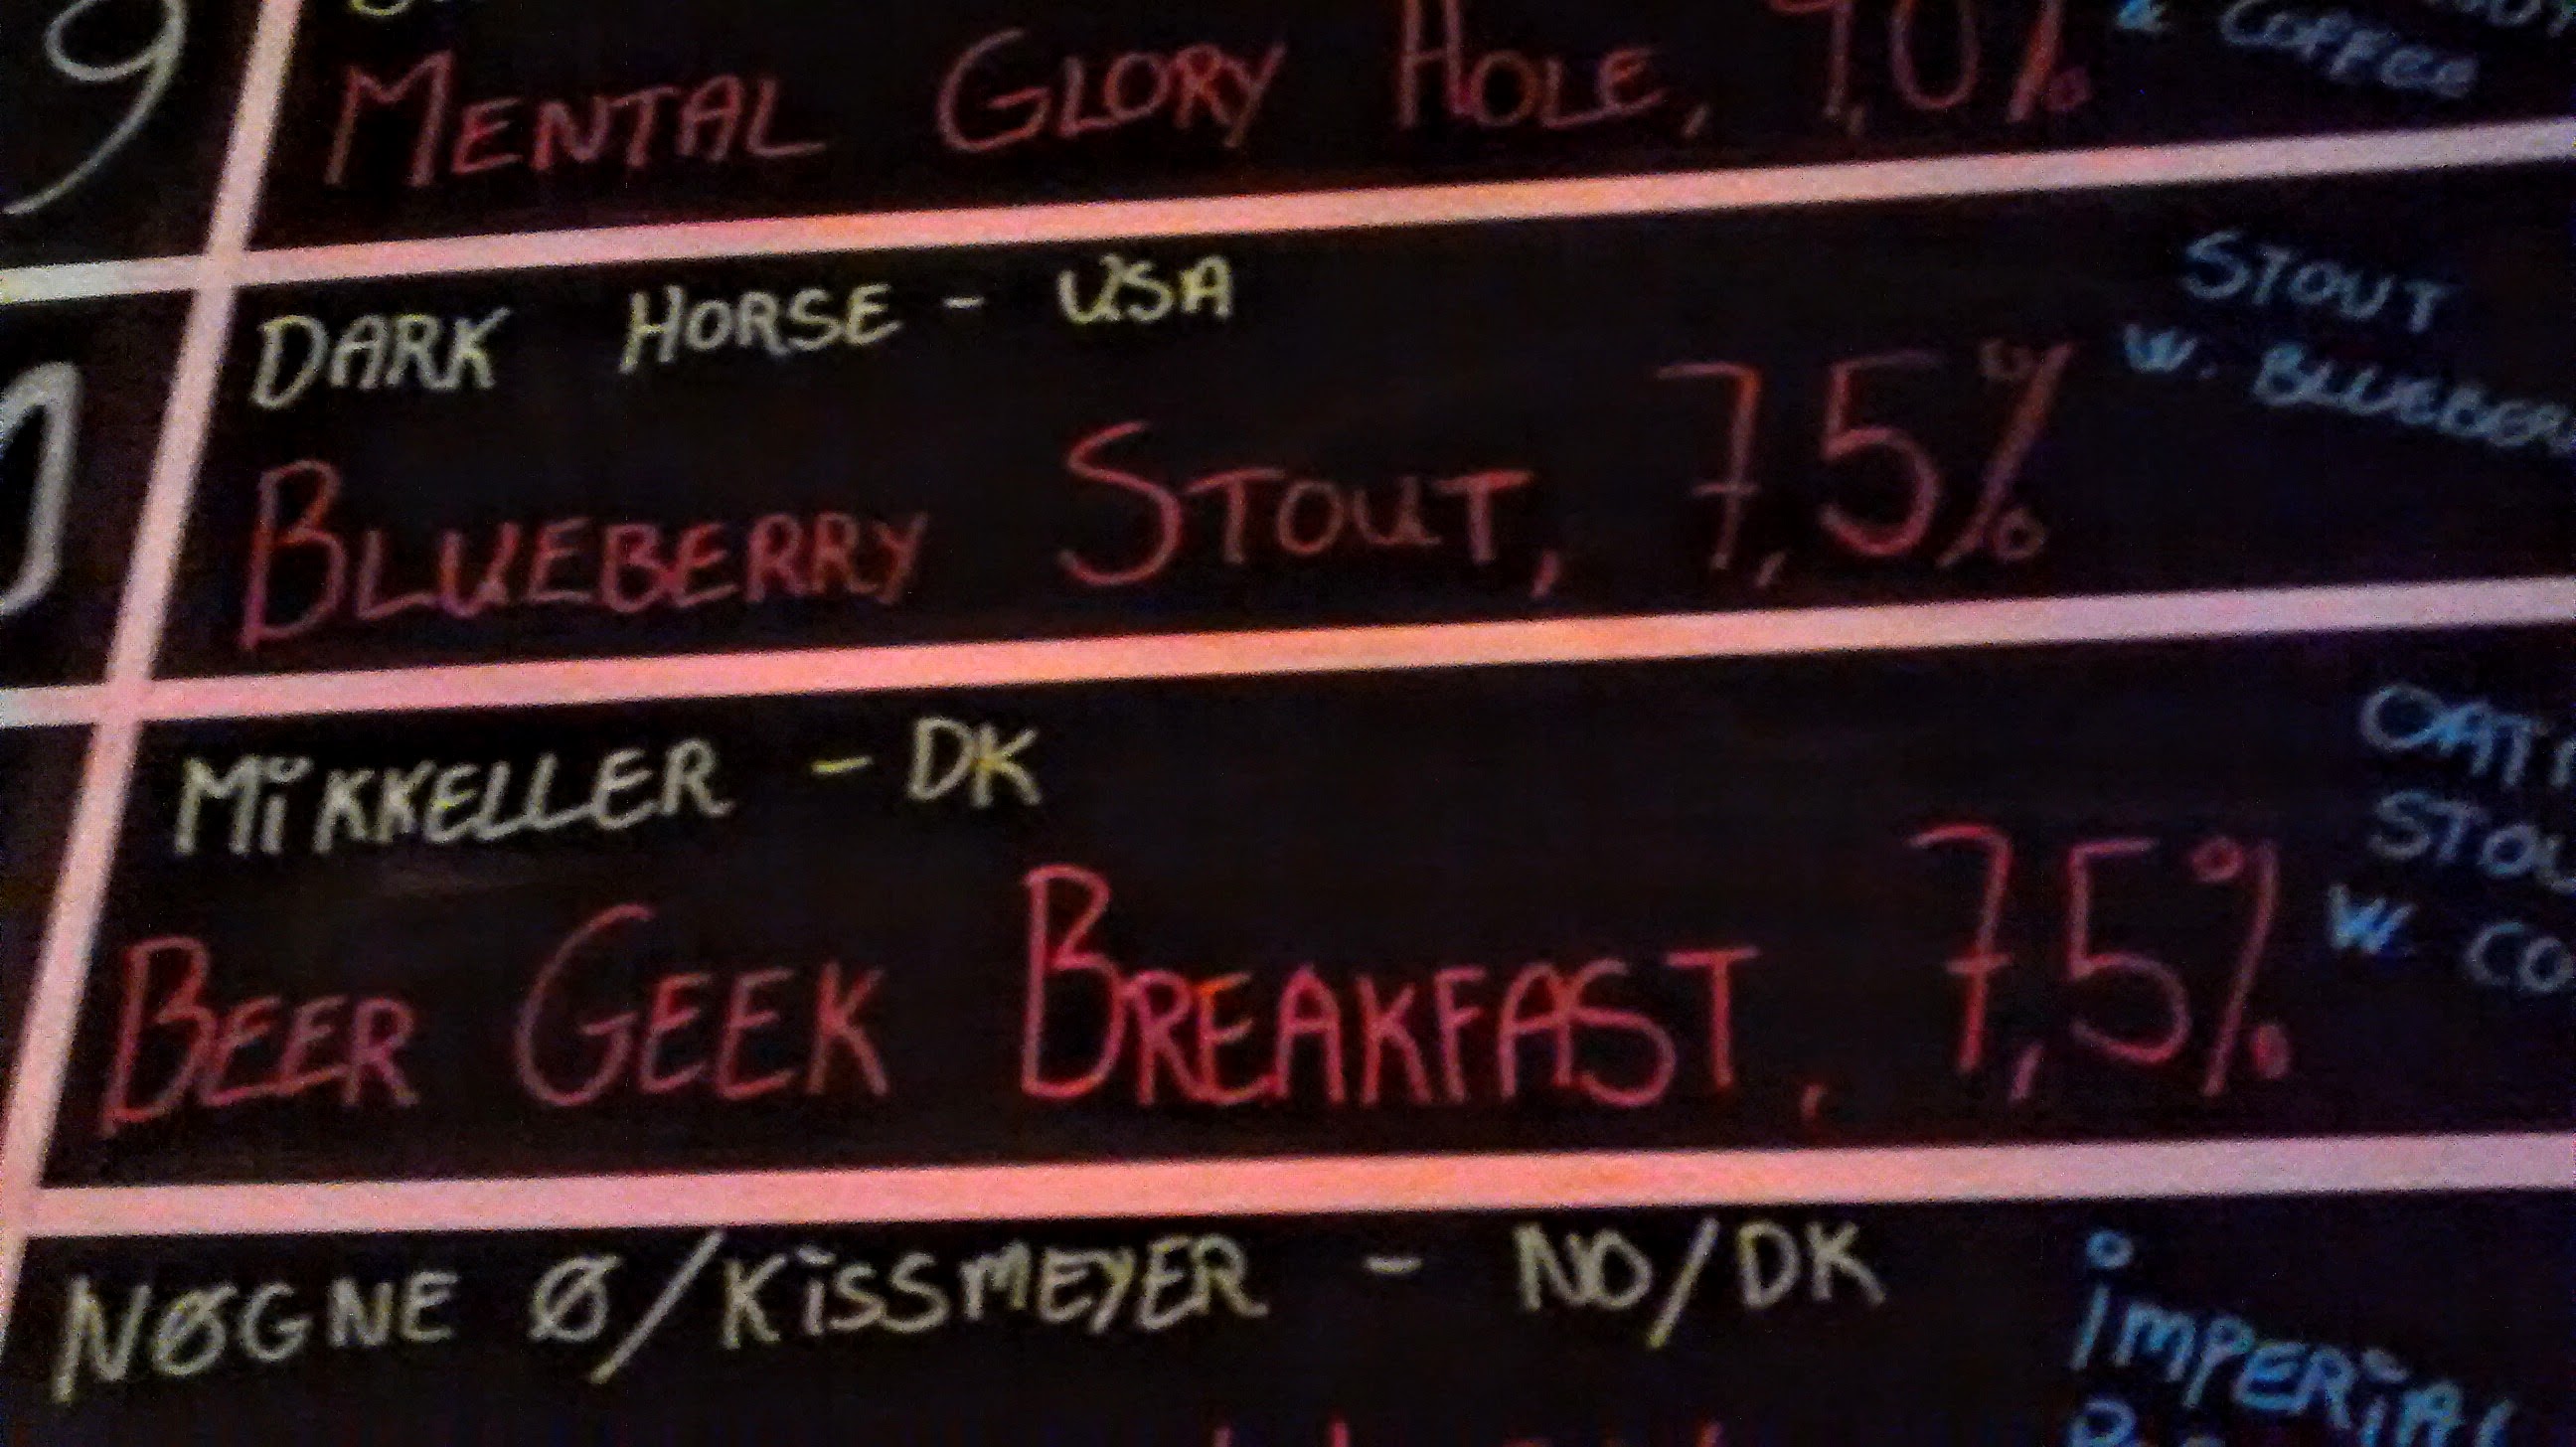 9
MENTAL GLORY HOLE, 9,0%
& COFFEE
DARK HORSE - USA
BLUEBERRY STOUT, 7,5%
STOUT
W. BLUEBER
MiKKELLER - DK
BEER GEEK BREAKFAST, 7,5%
OAT
STOU
W. CO
NØGNE Ø/KiSSMEYER - NO/DK
iMPERiAL